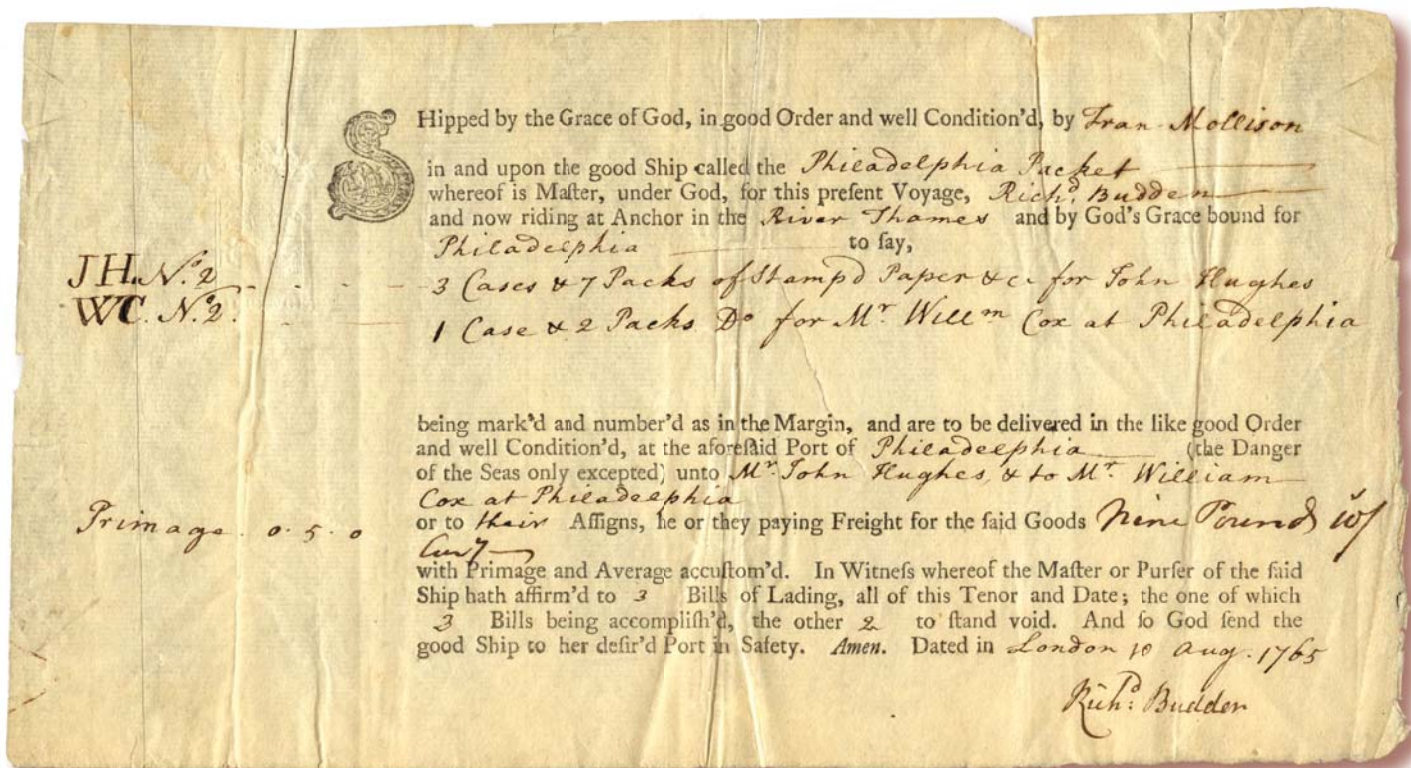 SHipped by the Grace of God, in good Order and well Condition'd, by Fran Mollison
in and upon the good Ship called the Philadelphia Packet
whereof is Maſter, under God, for this preſent Voyage, Richd. Budden
and now riding at Anchor in the River Thames and by God's Grace bound for
Philadelphia to ſay,
JH. No. 2 3 Cases & 7 Packs of Stampd Paper &c. for John Hughes
WC. No. 2. 1 Case & 2 Packs Do for Mr. Willm Cox at Philadelphia
being mark'd and number'd as in the Margin, and are to be delivered in the like good Order
and well Condition'd, at the aforeſaid Port of Philadelphia (the Danger
of the Seas only excepted) unto Mr. John Hughes, & to Mr. William
Cox at Philadelphia
Primage. 0. 5. 0 or to their Aſſigns, he or they paying Freight for the ſaid Goods Nine Pounds 10/
Curry
with Primage and Average accuſtom'd. In Witneſs whereof the Maſter or Purſer of the ſaid
Ship hath affirm'd to 3 Bills of Lading, all of this Tenor and Date; the one of which
3 Bills being accompliſh'd, the other 2 to ſtand void. And ſo God ſend the
good Ship to her deſir'd Port in Safety. Amen. Dated in London 10 Aug. 1765
Richd: Budden